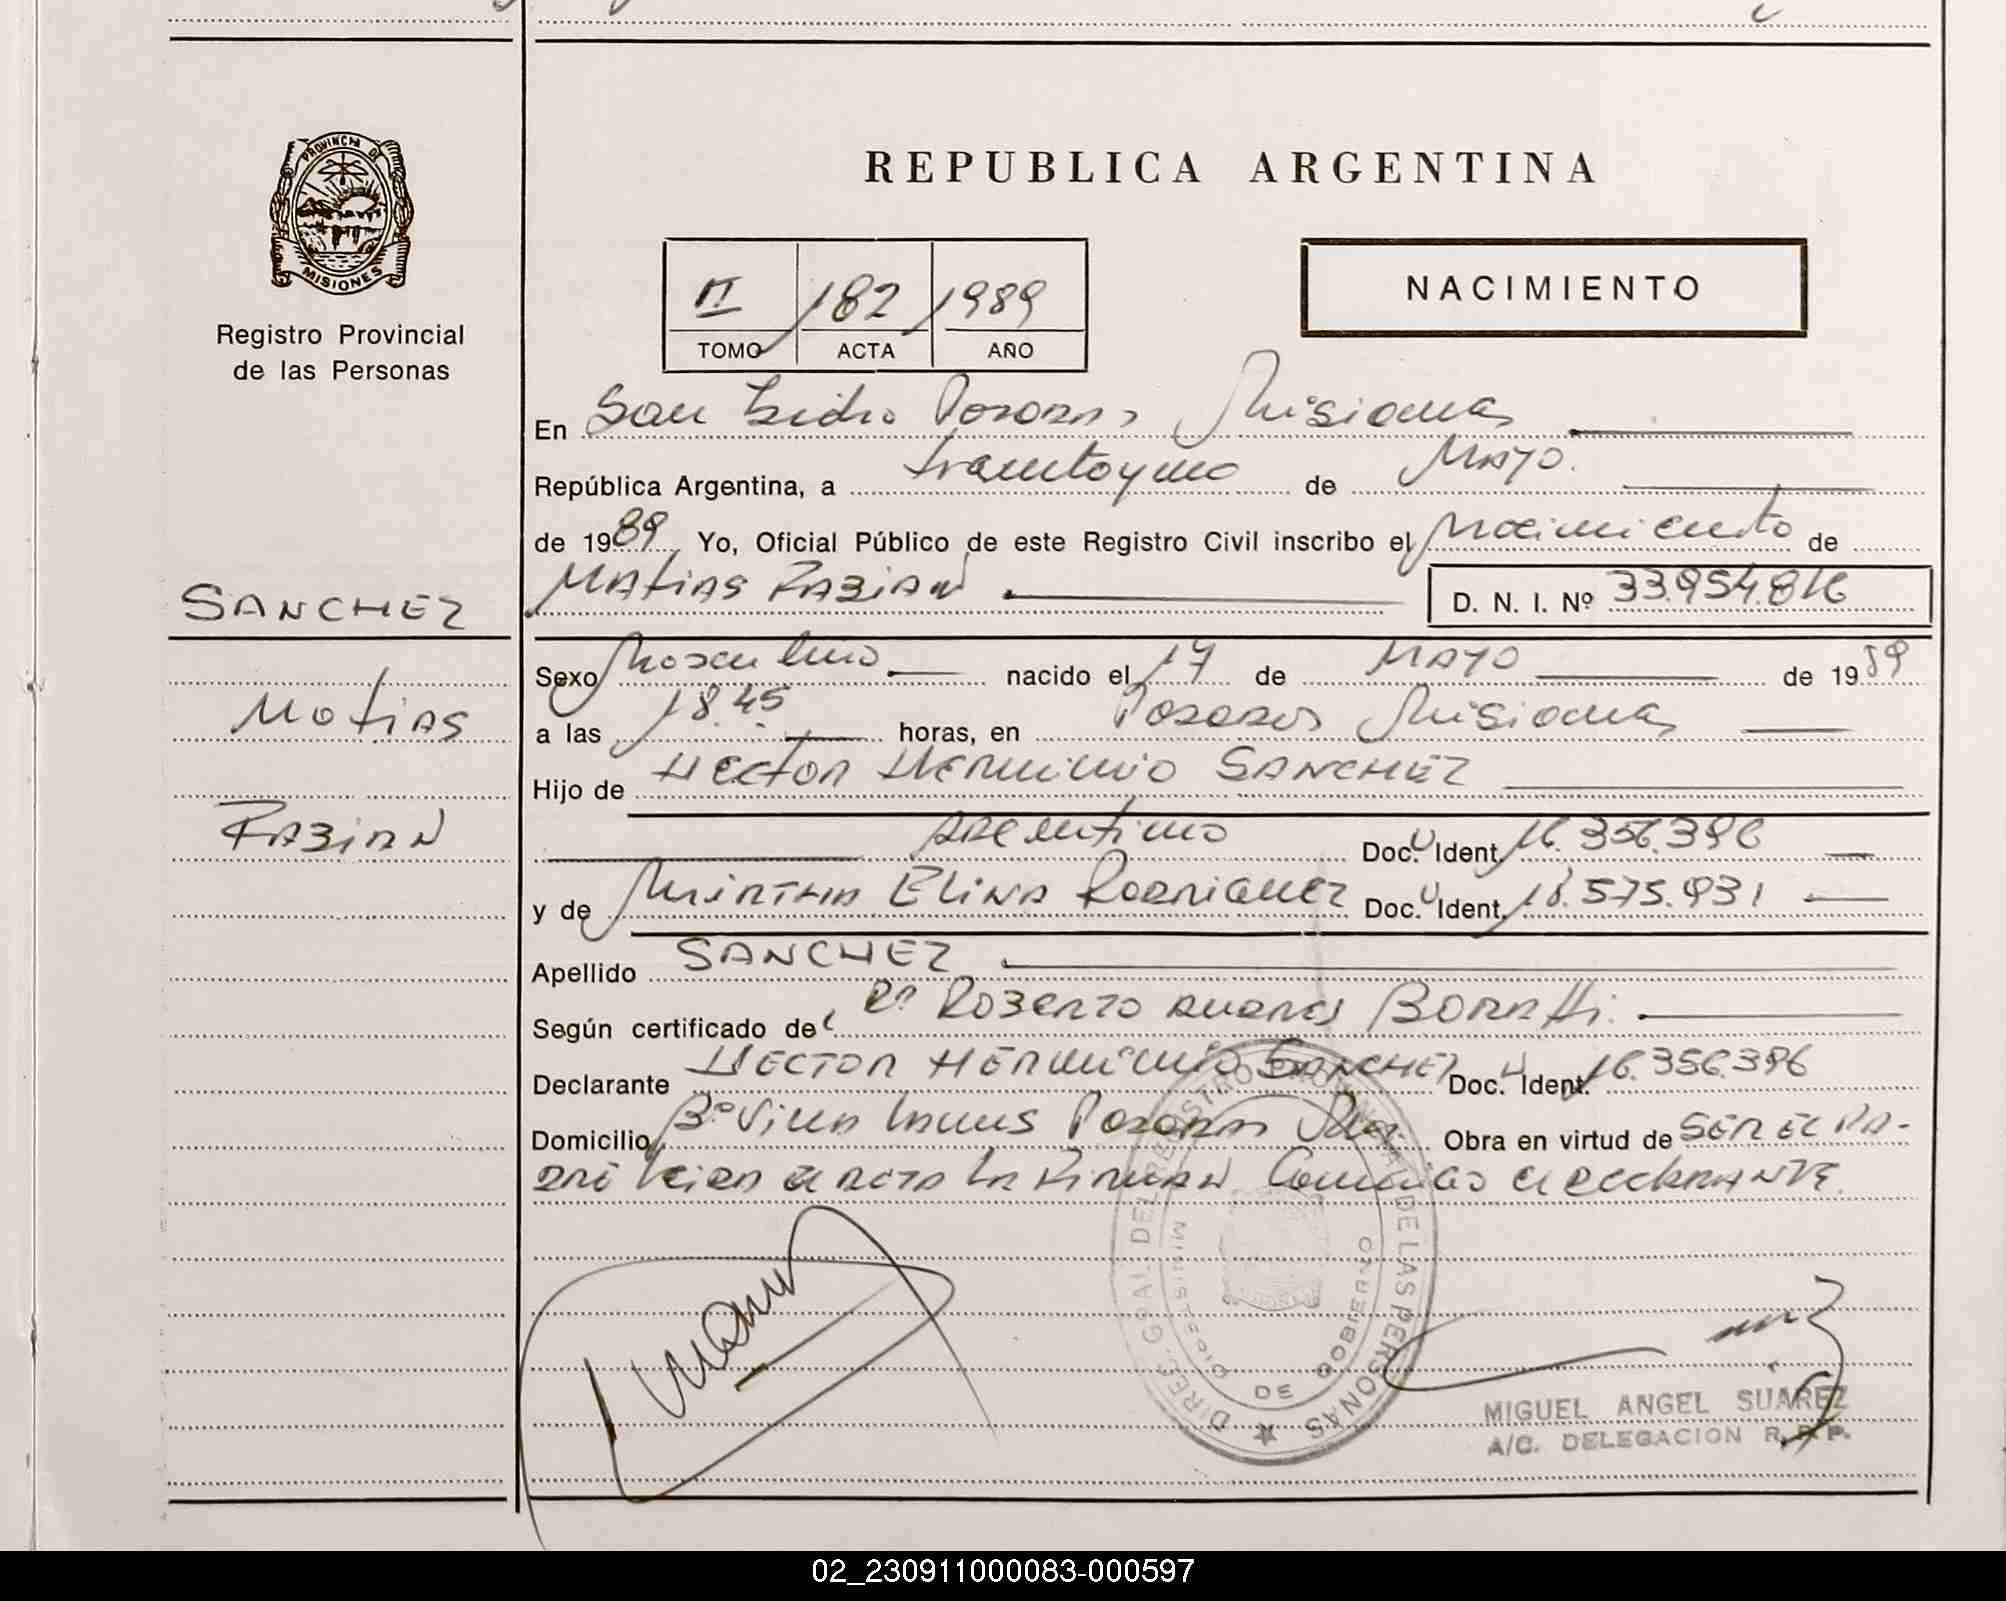 REPUBLICA ARGENTINA
PROVINCIA DE
MISIONES
Registro Provincial
de las Personas
II 182 1989
TOMO ACTA AÑO
NACIMIENTO
En San Isidro Posadas Misiones
República Argentina, a treintayuno de Mayo.
de 1989 Yo, Oficial Público de este Registro Civil inscribo el Nacimiento de
MATIAS FABIAN D. N. I. Nº 33.954.816
SANCHEZ
Matias
FABIAN
Sexo Masculino nacido el 17 de MAYO de 1989
a las 18.45 horas, en Posadas Misiones
Hijo de HECTOR HERMINIO SANCHEZ
ARGENTINO Doc. Ident. 16.356.396
y de MIRTHA ELINA RODRIGUEZ Doc. Ident. 18.575.931
Apellido SANCHEZ
Según certificado del Dr ROBERTO ANDRES
Declarante HECTOR HERMINIO SANCHEZ Doc. Ident. 16.356.396
Domicilio Bº Villa Posadas Obra en virtud de SER EL PA-
DRE leida el acta la FIRMAN Conmigo el declarante
DIREC. GRAL. DEL REGISTRO PROVINCIAL DE LAS PERSONAS
MINISTERIO DE GOBIERNO
MIGUEL ANGEL SUAREZ
A/C. DELEGACION R.P.P.
02_230911000083-000597